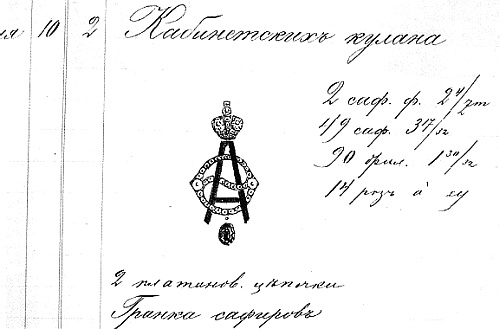 10 2 Кабинетскихъ кулана
2 саф. ф. 2 4/
49 саф. 3 17/32
90 брил. 1 30/32
14 розъ à
2 платинов. цѣпочки
Гранка сафировъ